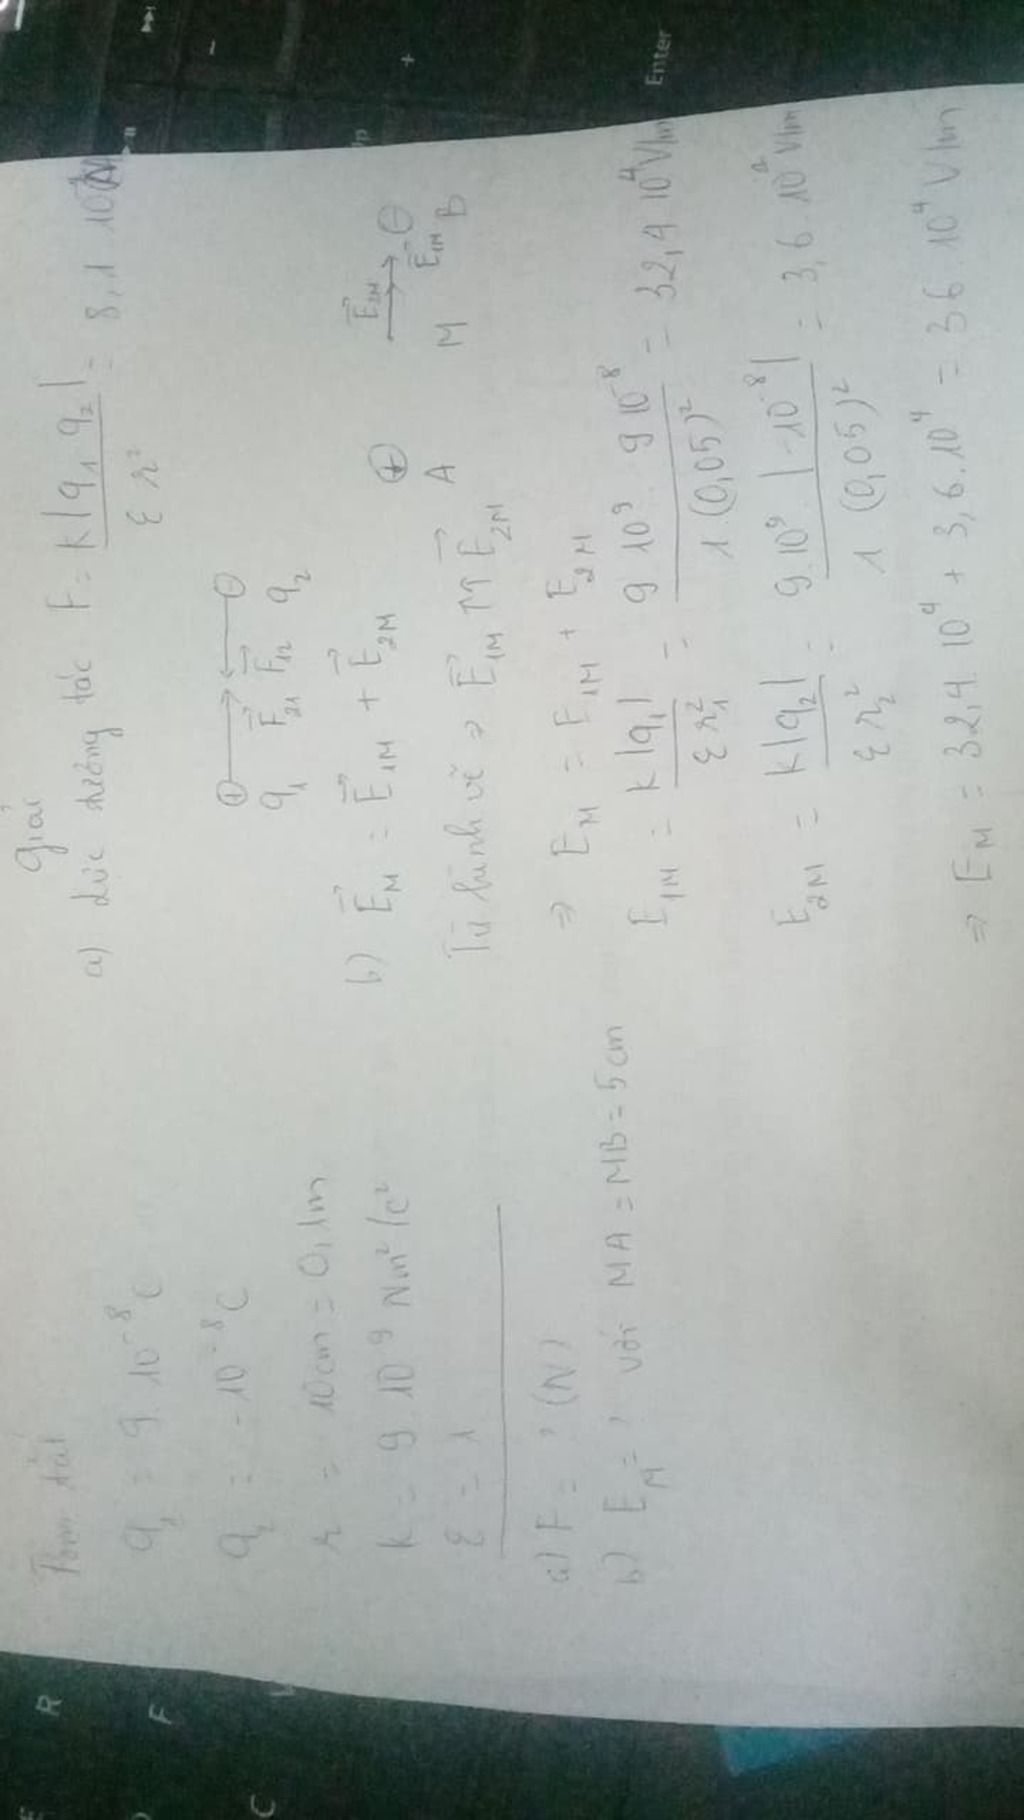 Tóm tắt
q₁ = 9.10⁻⁸C
q₂ = -10⁻⁸C
r = 10cm = 0,1m
k = 9.10⁹ Nm²/C²
ε = 1
a) F = ? (N)
b) E_M = ? với MA = MB = 5cm
Giải
a) Lực tương tác F = k|q₁.q₂| / εr² = 8,1.10
⊕ ⊖
q₁ F⃗₂₁ F⃗₁₂ q₂
b) E⃗_M = E⃗₁M + E⃗₂M
⊕ E⃗₂M ⊖
A M E⃗₁M B
Từ hình vẽ ⇒ E⃗₁M ↑↑ E⃗₂M
⇒ E_M = E₁M + E₂M
E₁M = k|q₁| / εr₁² = 9.10⁹.9.10⁻⁸ / 1.(0,05)² = 32,4.10⁴V/m
E₂M = k|q₂| / εr₂² = 9.10⁹.|-10⁻⁸| / 1.(0,05)² = 3,6.10⁴V/m
⇒ E_M = 32,4.10⁴ + 3,6.10⁴ = 36.10⁴V/m
Enter
+
-
R
F
C